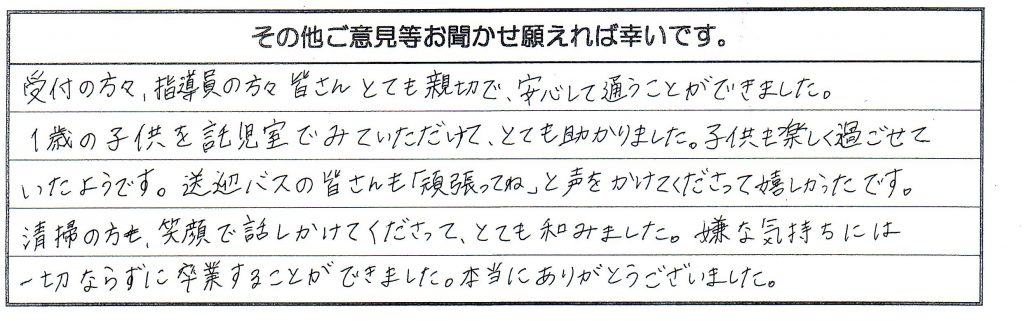 その他ご意見等お聞かせ願えれば幸いです。
受付の方々、指導員の方々皆さんとても親切で、安心して通うことができました。
1歳の子供を託児室でみていただけて、とても助かりました。子供も楽しく過ごせて
いたようです。送迎バスの皆さんも「頑張ってね」と声をかけてくださって嬉しかったです。
清掃の方も、笑顔で話しかけてくださって、とても和みました。嫌な気持ちには
一切ならずに卒業することができました。本当にありがとうございました。